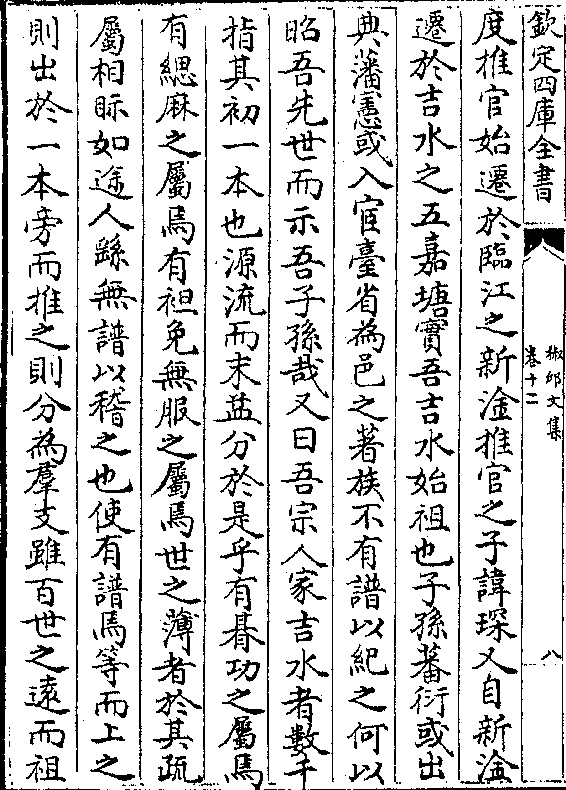 欽定四庫全書
椒邱文集
卷十二
八
度推官始遷於臨江之新淦推官之子諱琛又自新淦
遷於吉水之五嘉塘實吾吉水始祖也子孫蕃衍或出
典藩憲或入官臺省為邑之著族不有譜以紀之何以
昭吾先世而示吾子孫哉又曰吾宗人家吉水者數千
指其初一本也源流而末益分於是乎有朞功之屬焉
有緦麻之屬焉有袒免無服之屬焉世之薄者於其疏
屬相眎如途人繇無譜以稽之也使有譜焉等而上之
則出於一本旁而推之則分為羣支雖百世之遠而祖